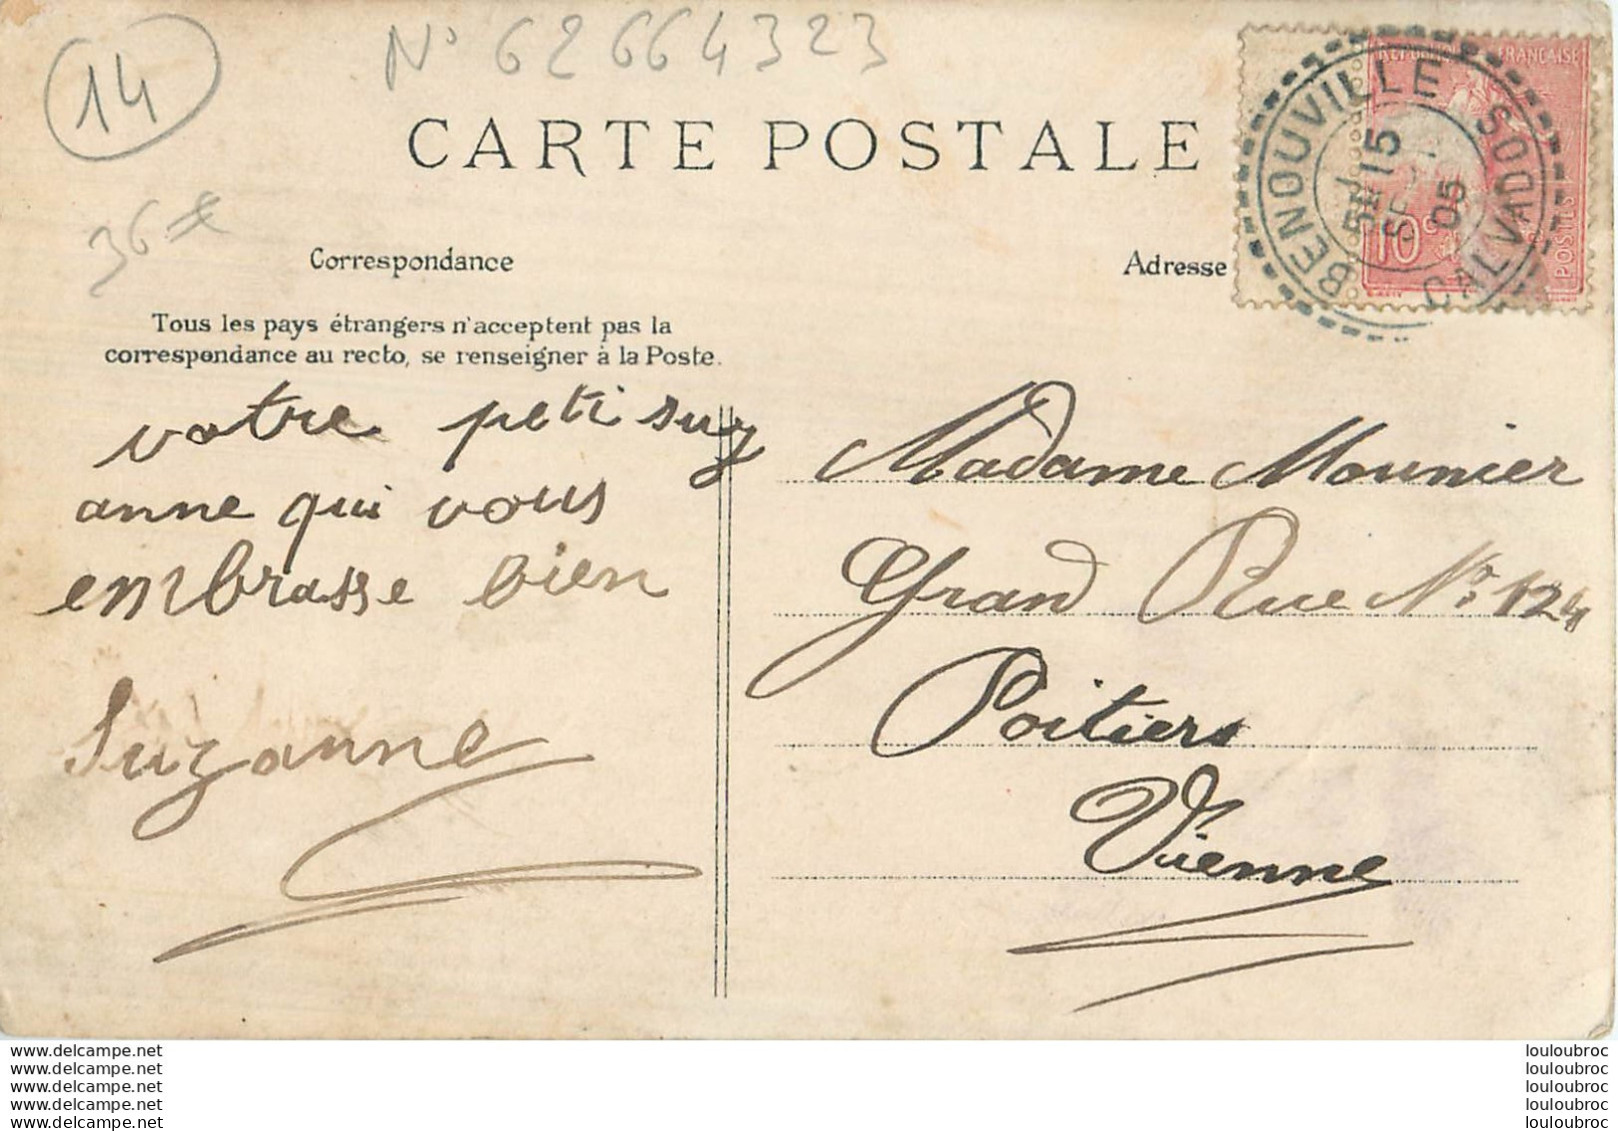 14
N° 626664323
36€
CARTE POSTALE
BENOUVILLE CALVADOS
15
SEPT
05
REPUBLIQUE FRANÇAISE
10c
POSTES
Correspondance
Adresse
Tous les pays étrangers n'acceptent pas la
correspondance au recto, se renseigner à la Poste.
votre peti suz
anne qui vous
embrasse bien
Suzanne
Madame Mounier
Grand Rue N° 124
Poitiers
Vienne
www.delcampe.net
www.delcampe.net
www.delcampe.net
www.delcampe.net
www.delcampe.net
louloubroc
louloubroc
louloubroc
louloubroc
louloubroc